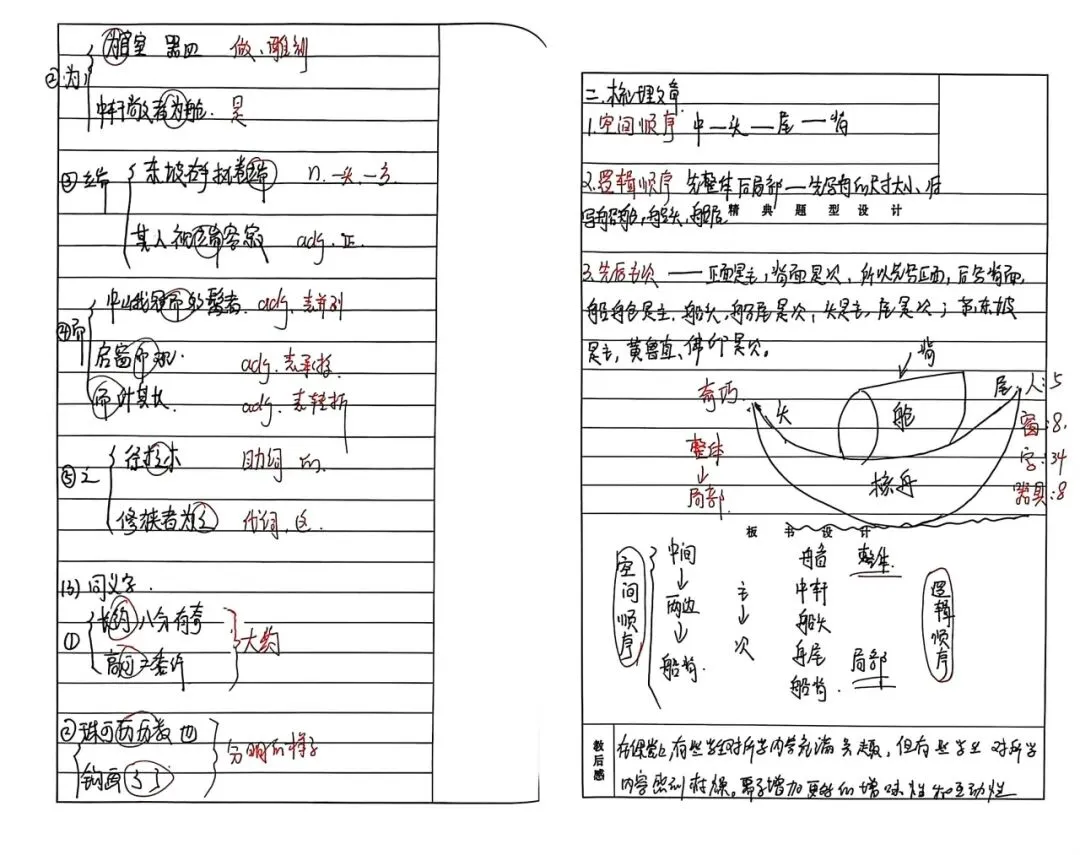 ②为
为宫室 器皿 做、雕刻
中轩敞者为舱. 是
③端
东坡右手执卷端 n. 一头,一方
其人视端容寂 adj. 正.
④而
中峨冠而多髯者. adj. 表并列
启窗而观. adj. 表承接.
而计其长 adj. 表轻折
⑤之
助词 的.
修狭者为之 代词, 这.
(3) 同义字.
① 长约八分有奇
高可二黍许
大约
② 珠可历历数也
钩画了了
分明的样子
二.梳理文章.
1.空间顺序 中—头—尾—背
2.逻辑顺序 先整体后局部—先写舟的尺寸大小,后
写船舱,船头,船尾
精 典 题 型 设 计
3.先后主次 —— 正面是主,背面是次,所以先写正面,后写背面,
船舱是主,船头,船尾是次,头是主,尾是次;苏东坡
是主,黄鲁直、佛印是次。
背
奇巧. 头 舱 尾 人:5
窗:8.
整体 字:34
↓
局部. 核舟 器具:8
板 书 设 计
空间顺序
中间
↓
两边
↓
船背.
主
↓
次
整体.
中轩
船头
舟尾
船背.
局部
逻辑顺序
教后感
在课堂上,有些学生对所学内容充满兴趣,但有些学生对所学
内容感到枯燥。需要增加更多的趣味性和互动性